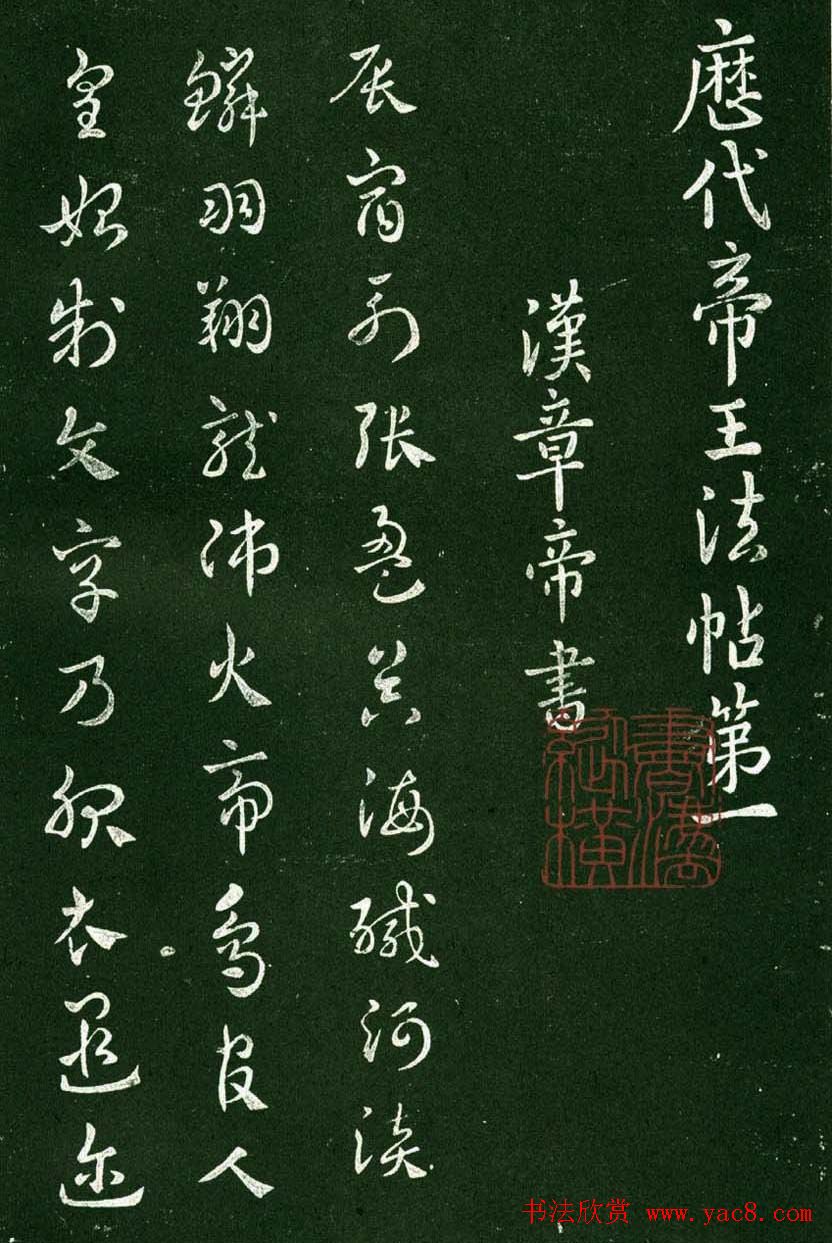 歷代帝王法帖第一
漢章帝書
辰宿列張盈昃海鹹河淡
鱗羽翔龍師火帝鳥官人
皇始制文字乃服衣遐迩
书法欣赏 www.yac8.com